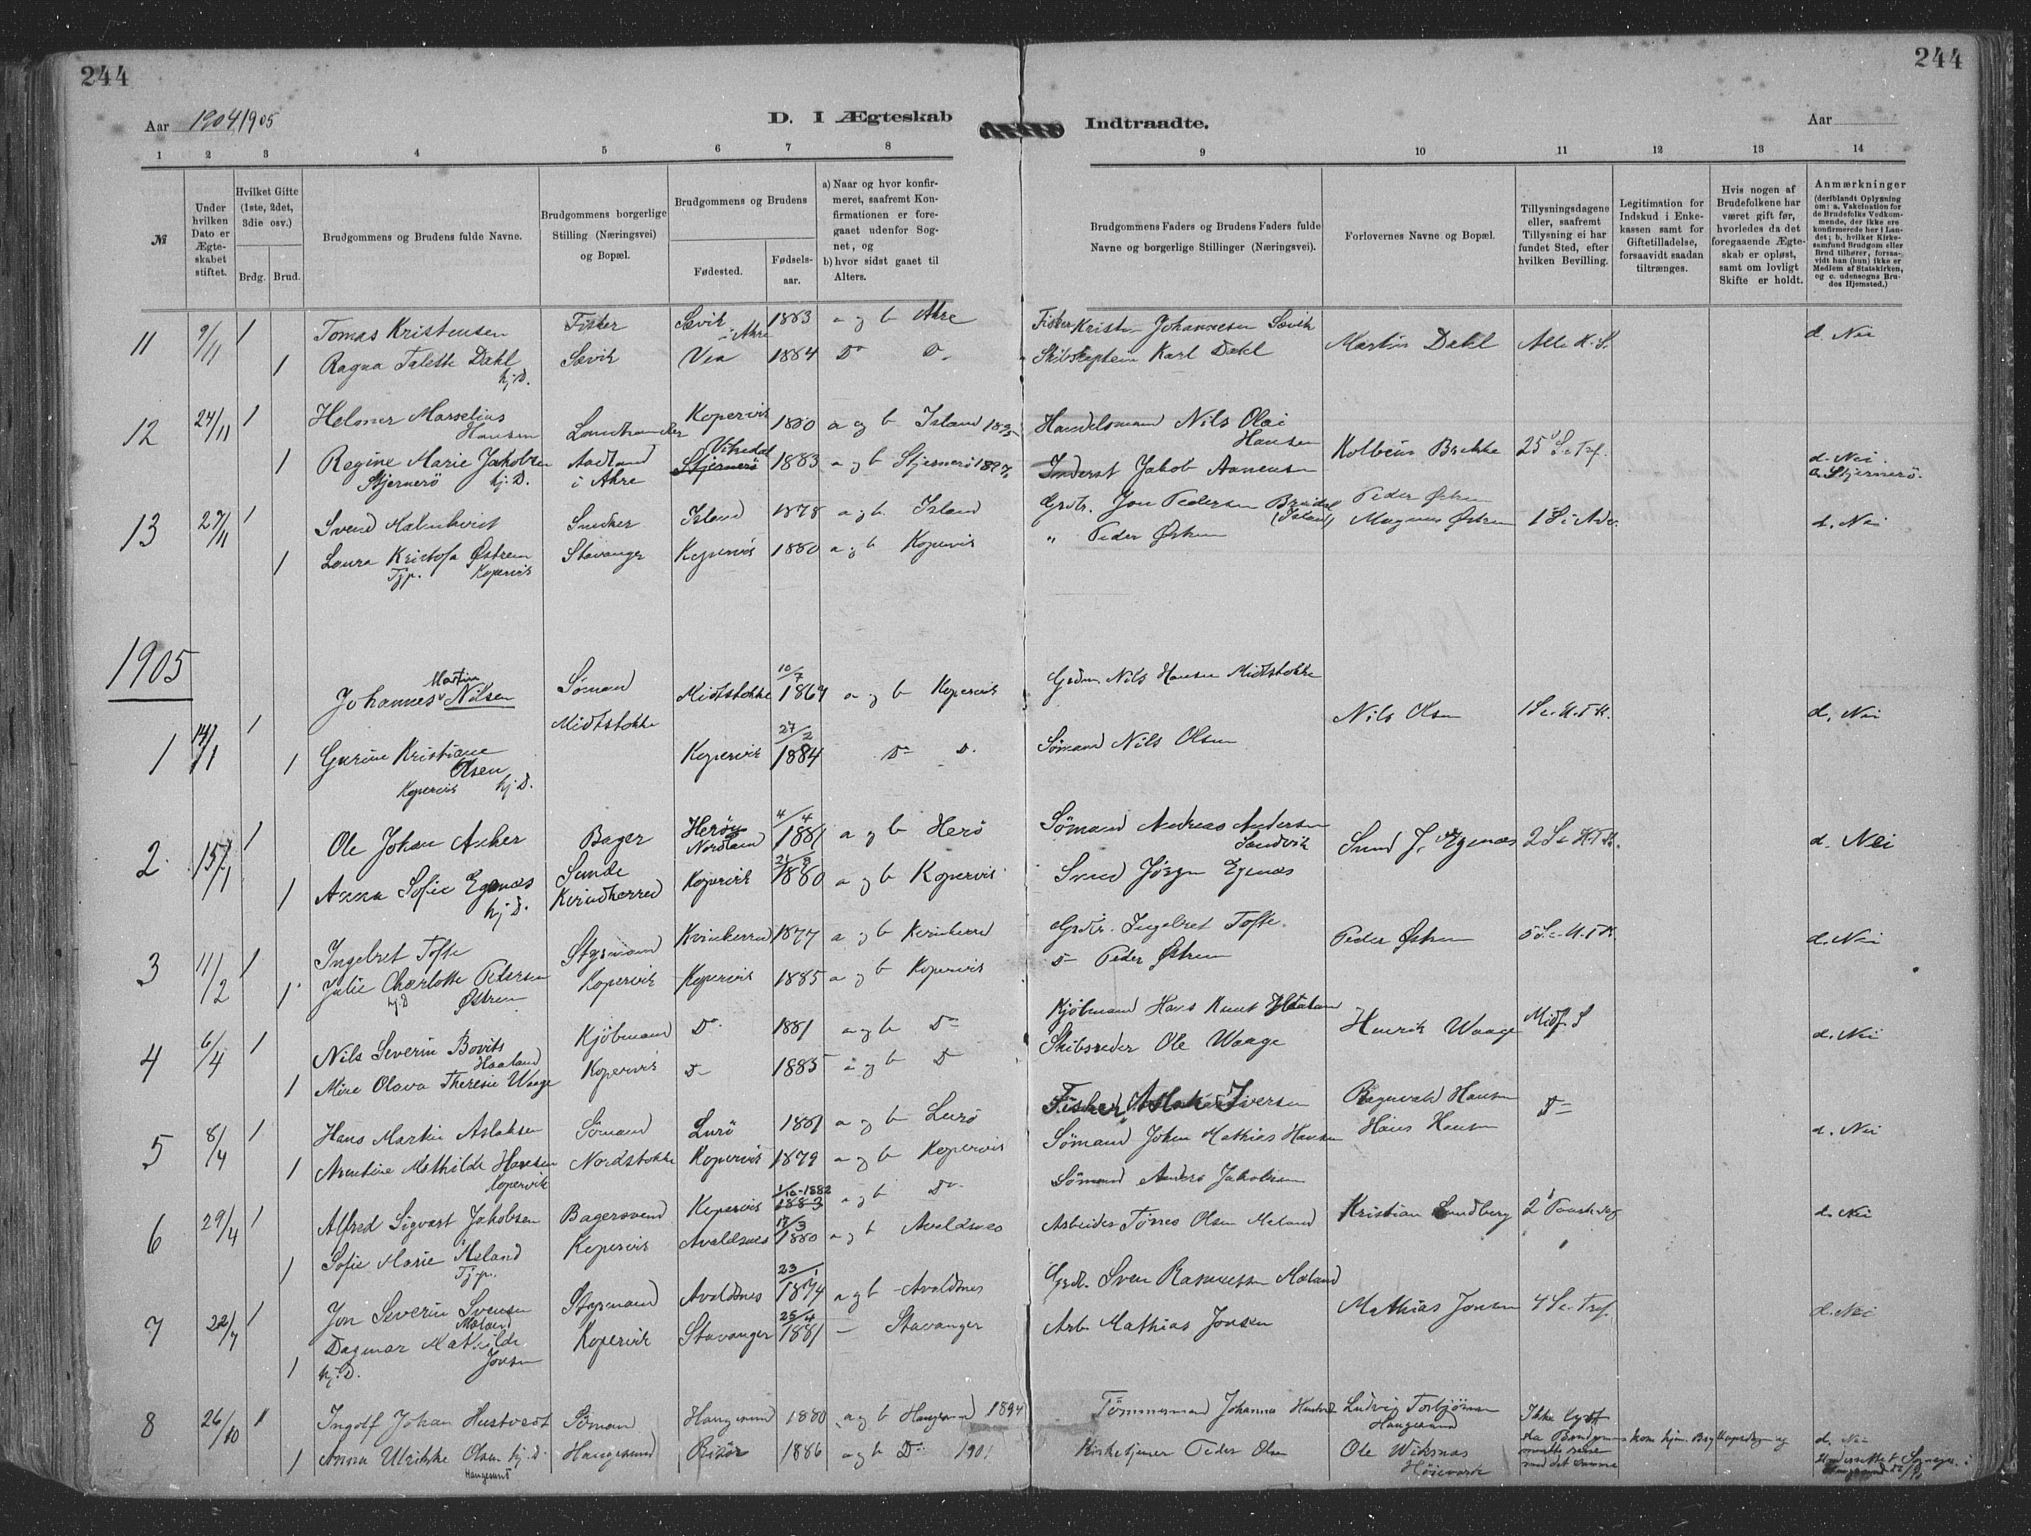 244
244
Aar 1904 1905
D. I Ægteskab Indtraadte.
Aar
1 2 3 4 5 6 7 8 9 10 11 12 13 14
№
Under hvilken Dato er Ægteskabet stiftet.
Hvilket Gifte (1ste, 2det, 3die osv.)
Brdg. Brud.
Brudgommens og Brudens fulde Navne.
Brudgommens borgerlige Stilling (Næringsvei) og Bopæl.
Brudgommens og Brudens
Fødested.
Fødselsaar.
a) Naar og hvor konfirmeret, saafremt Konfirmationen er foregaaet udenfor Sognet, og
b) hvor sidst gaaet til Alters.
Brudgommens Faders og Brudens Faders fulde Navne og borgerlige Stillinger (Næringsvei).
Forlovernes Navne og Bopæl.
Tillysningsdagene eller, saafremt Tillysning ei har fundet Sted, efter hvilken Bevilling.
Legitimation for Indskud i Enkekassen samt for Giftetilladelse, forsaavidt saadan tiltrænges.
Hvis nogen af Brudefolkene har været gift før, hvorledes da det foregaaende Ægteskab er opløst, samt om lovligt Skifte er holdt.
Anmærkninger
(deriblandt Oplysning om: a. Vakcination for de Brudefolks Vedkommende, der ikke ere konfirmerede her i Landet; b. hvilket Kirkesamfund Brudgom eller Brud tilhører, forsaavidt han (hun) ikke er Medlem af Statskirken, og c. udensogns Brudes Hjemsted.)
11 9/11 1 Tomas Kristensen Fisker Sævik i Akre 1883 a og b Akre Fisker Kristen Johannesen Sævik Martin Dahl Alle H. S. d. Nei
1 Ragna Talette Dahl hj. D. Sævik Vea 1884 Do Do Skibskaptein Karl Dahl
12 24/11 1 Helmer Marselius Hansen Kopervik 1880 a og b Island 1895 Handelsmand Nils Olai Hansen Kolbeius Brekke 25 S. e. Tref. d. Nei
1 Regine Marie Jakobsen Stjernerö hj. D. Aadland i Akre Vikedal Stjernerö 1883 a og b Stjernerö 1897 Inderst Jakob Aanensen a. Stjernerö.
13 27/11 1 Svend Malmkvist Snekker Island 1878 a og b Island Grdbr. Jon Pedersen Breidal (Island) Peder Østrem Magnus Østrem 1 S. i Adv. d. Nei
1 Laura Kristofa Østrem Tjp. Kopervik Stavanger Kopervik 1880 a og b Kopervik " Peder Østrem
1905
1 14/1 1 Johannes Martin Nilsen Sømand Midtstokke Midtstokke 10/7 1869 a og b Kopervik Grdm Nils Hansen Midtstokke Nils Olsen 1 S. e. H. T. K. d. Nei
1 Gurine Kristiane Olsen Kopervik hj. D. Kopervik 27/2 1884 Do D. Sømand Nils Olsen
2 15/1 1 Ole Johan Anker Bager Herøy Nordland 4/4 1881 a og b Herö Sømand Andreas Andersen Sandvik Svend J. Egenæs 2 S. e. H. T. K. d. Nei
1 Anna Sofie Egenæs hj. D. Sunde Kvindherred Kopervik 1880 a og b Kopervik Svend Jørgen Egenæs
3 11/2 1 Ingebret Tofte Styrmand Kvinherred 1877 a og b Kvinherred Grdbr. Ingebret Tofte Peder Østrem 5 S. e. H. T. K. d. Nei
1 Julie Charlotte Pedersen hj. D Østrem Kopervik Kopervik 1885 a og b Kopervik Do Peder Østrem
4 6/4 1 Nils Severin Bovits Haaland Kjøbmand Do 1881 a og b Do Kjøbmand Hans Knut Haaland Henrik Waage Midf. S d. Nei
1 Mine Olava Theresie Waage Kopervik Do 1885 a og b D Skibsreder Ole Waage
5 8/4 1 Hans Martin Aslaksen Sømand Lurö 1881 a og b Lurö Fisker Aslak Iversen Ragnvald Hansen Hans Hansen Do d. Nei
1 Arentine Mathilde Hansen Kopervik Nordstokke Kopervik 1879 a og b Kopervik Sømand Johan Mathias Hansen
6 29/4 1 Alfred Sigvart Jakobsen Bagersvend Kopervik 1/10-1882 1883 a og b Do Sømand Anders Jakobsen Kristian Sundberg 2 Paaskedag d. Nei
1 Sofie Marie Meland Tj. p. Kopervik Avaldsnes 17/3 1880 a og b Avaldsnes Arbeider Tønnes Olsen Meland
7 22/7 1 Jon Severin Svensen Meland Styrmand Avaldsnes 23/1 1874 a og b Avaldsnes Grdb. Sven Rasmussen Meland Mathias Jonsen 4 S. e. Tref. d. Nei
1 Dagmar Mathilde Jonsen hj. D. Kopervik Stavanger 25/4 1881 - Stavanger Arb. Mathias Jonsen
8 26/10 1 Ingolf Johan Hustvedt Sömand Haugesund 1880 a og b Haugesund 1894 Tömmermand Johannes Hustvedt Ludvig Torbjörnsen Haugesund Ikke lyst da Brudgommen kom hjem maatte reise med det samme d. Nei
1 Anna Ulrikke Olsen hj. D. Haugesund Haugesund Risör 1886 a og b Do 1901 Kirketjener Peder Olsen Ole Wiksnæs Höievarde